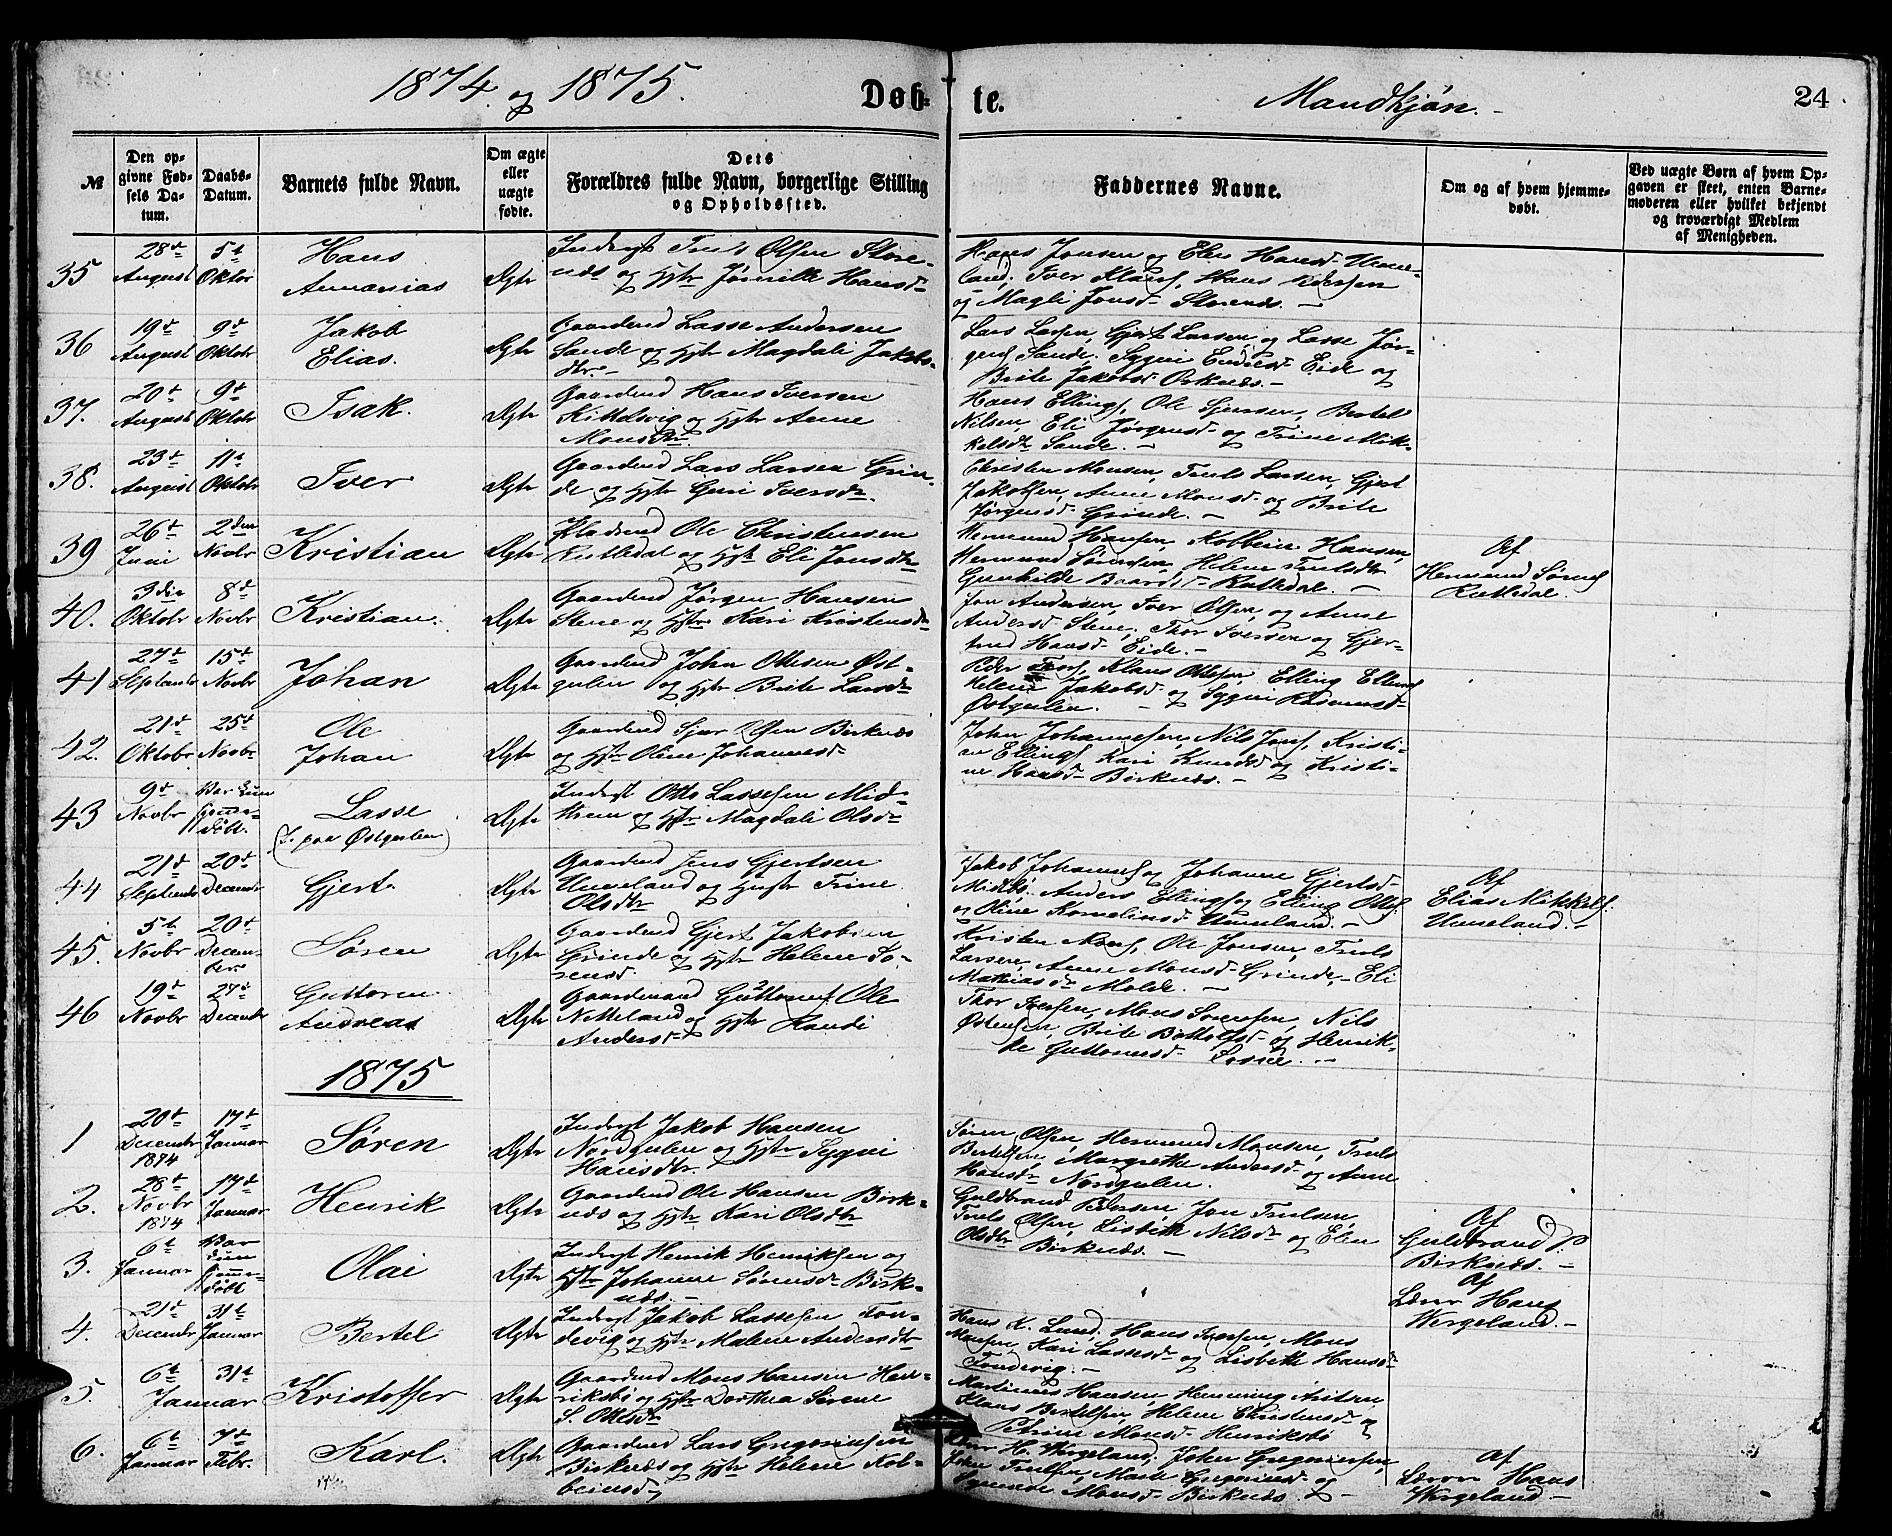 1874. og 1875.
Døb-
te.
Mandkjøn.-
24
№
Den op-
givne Fød-
sels Da-
tum.
Daabs-
Datum.
Barnets fulde Navn.
Om ægte
eller
uægte
fødte.
Dets
Forældres fulde Navn, borgerlige Stilling
og Opholdssted.
Faddernes Navne.
Om og af hvem hjemme-
døbt.
Ved uægte Børn af hvem Op-
gaven er skeet, enten Barne-
moderen eller hvilket bekjendt
og troværdigt Medlem
af Menigheden.
35
28de August
5te Oktbr
Hans
Ananias
Ægte
Inderst Truls Olsen Store-
næs og Hstr Jørnille Hansd
Hans Jonsen og Elen Hansd Unne-
land, Iver Klaus, Hans Pedersen
og Magli Jonsd Storenæs. -
36
19de August
9de Oktobr
Jakob
Elias.
Ægte
Gaardmd Lasse Andersen
Sande og Hstr Magdali Jakobs-
dtr. -
Lars Larsen, Gjert Larsen, og Lasse Jør-
gens Sande, Sygni Endresd Eide og
Brite Jakobsd Osknæs. -
37.
20de August
9de Oktobr
Isak.
Ægte
Gaardmd Hans Iversen
og Hstr Anne
Monsdtr.
Hans Ellings, Ole Sjursen, Bertel
Nilsen, Eli Jørgensd og Trine Mik-
kelsdtr Sande. -
38.
23de August
11te Oktobr
Iver
Ægte
Gaardmd Lars Larsen Grin-
de og Hstr Guri Iversdtr.
Christen Monsen, Truls Larsen, Gjert
Jakobsen, Anne Monsd og Brite
Jørgensd Grinde. -
39
26de Juni
2den Novbr
Kristian
Ægte
Pladsmd Ole Christensen
Rutledal og Hstr Eli Jonsdtr
Hermund Hansen, Kolbein Hansen,
Hermund Sørensen, Helene Trulsdtr
Gunhilde Baardsd Rutledal. -
Af
Hermund Sørens
Rutledal.
40.
3die Oktobr
8de Novbr
Kristian.
Ægte
Gaardmd Jørgen Hansen
Stene og Hstr Kari Kristensd
Jon Andersen, Iver Olsen, og Anne
Andersd Stene, Thor Iversen og Gjer-
trud Hansd Eide. -
41
27de Septembr
15de Novbr
Johan
Ægte
Gaardmd John Ottesen Øst-
gulen og Hstr Brite Larsd
Peder Klaus Ottesen, Elling Ellings
Helene Jakobsd og Sygni Rasmusd
Østgulen. -
42.
21de Oktobr
25de Novbr
Ole
Johan
Ægte
Gaardmd Sjur Olsen Birknæs
og Hstr Oline Johannesd
John Johannesen, Nils Jons, Kristi-
an Ellings, Kari Knudsd og Kristi-
ne Hansd Birknæs. -
43
9de Novbr
Bar kun
hjemme-
døbt.
Lasse
(f. paa Østgulen)
Ægte
Inderst Otto Lassesen Mid-
trem og Hstr Magdali Olsd
44
21de Septembr
20de Decembr
Gjert
Ægte
Gaardmd Jens Gjertsen
Unneland og Hustr Trine
Olsdtr
Jakob Johannes og Johanne Gjertsd
Midtbø. Anders Ellings og Elling Ottes.
og Oline Korneliusd Unneland. -
Af
Elias Mikkels.
Unneland. -
45.
5te Novbr
20de
Decem-
ber.
Søren
Ægte
Gaardmd Gjert Jakobsen
Grinde og Hstr Helene Sø-
rensd.
Kristen Mons, Ole Jonsen, Truls
Larsen, Anne Monsd Grinde, - Eli
Mathiasd Molde. -
46
19de Novbr
27de Decembr
Guttorm
Andreas
Ægte
Gaardmand Guttorm Ole
Nitteland og Hstr Randi
Andersd
Thor Iversen, Mons Sørensen, Nils
Østensen, Brite Bottolfsd og Henrik-
ke Guttormsd
1875
1
20de Decembr 1874
17de Januar
Søren
Ægte
Inderst Jakob Hansen
Nordgulen og Hstr Sygni
Hansdtr.
Søren Olsen, Hermund Monsen, Truls
Bertelsen, Margrethe Andersd og Anne
Hansd Nordgulen.
2.
28de Novbr 1874
17de Januar
Henrik
Ægte
Gaardmd Ole Hansen Birk-
næs og Hstr Kari Olsdtr
Guldbrand Pedersen, Jon Trulsen,
Truls Olsen, Lisbeth Nilsd og Elen
Olsdtr Birknæs. -
Af
Guldbrand P.
Birknæs. -
3.
6te Januar
Bar
kun
hjemme-
døbt
Olai
Ægte
Inderst Henrik Henriksen og
Hstr Johanne Sørensd Birk-
næs. -
Af
Lærer Hans
Wergeland. -
4.
21de Decembr
31te Januar
Bertel
Ægte
Inderst Jakob Lassesen Ton-
devig og Hstr Malene Andersdtr
Hans K. Lund, Hans Iversen, Mons
Monsen, Kari Lassesd og Lisbeth Hansd
Tondevig. -
5.
6te
31te
Januar
Kristoffer
Ægte
Gaardmd Mons Hansen Hen-
riksbø og Hstr Dorthea Serene
S. Olesdtr
Martinus Hansen, Henning Antson
Klaus Bertelsen, Helene Christensd og
Petrine Monsd Henriksbø
6.
6te Januar
7de Febr.
Karl.
Ægte
Gaardmd Lars Gregoriussen
Birknæs og Hstr Helene Kol-
beinsd
Lærer H. Wergeland, John Gregoriussen,
John Trulsen, Marte Gregoriusd og
Monsd Birknæs. -
Af
Lærer Hans
Wergeland -